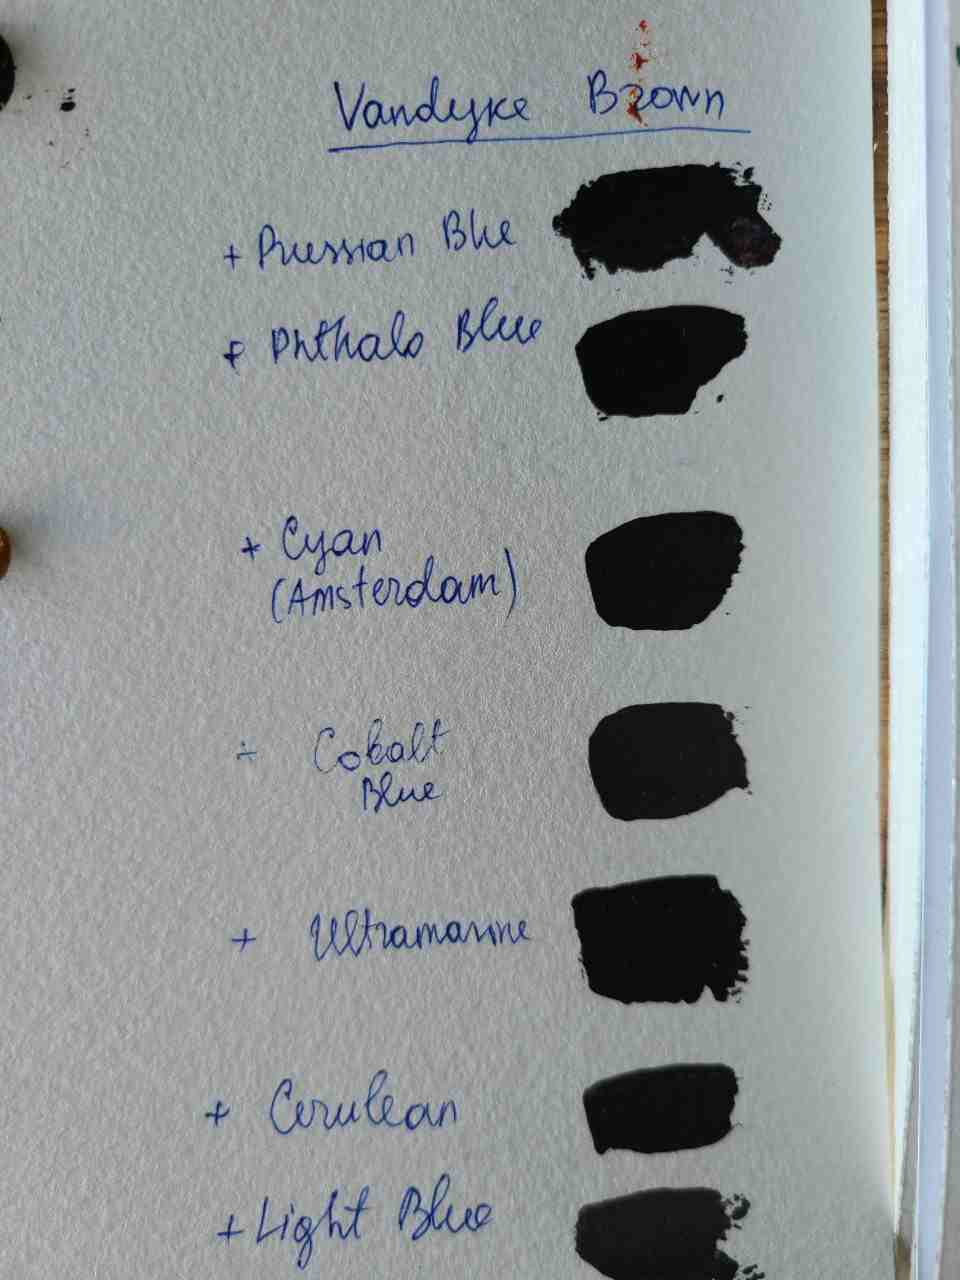 Vandyke Brown
+ Prussian Blue
+ Phthalo Blue
+ Cyan
(Amsterdam)
+ Cobalt
Blue
+ Ultramarine
+ Cerulean
+ Light Blue